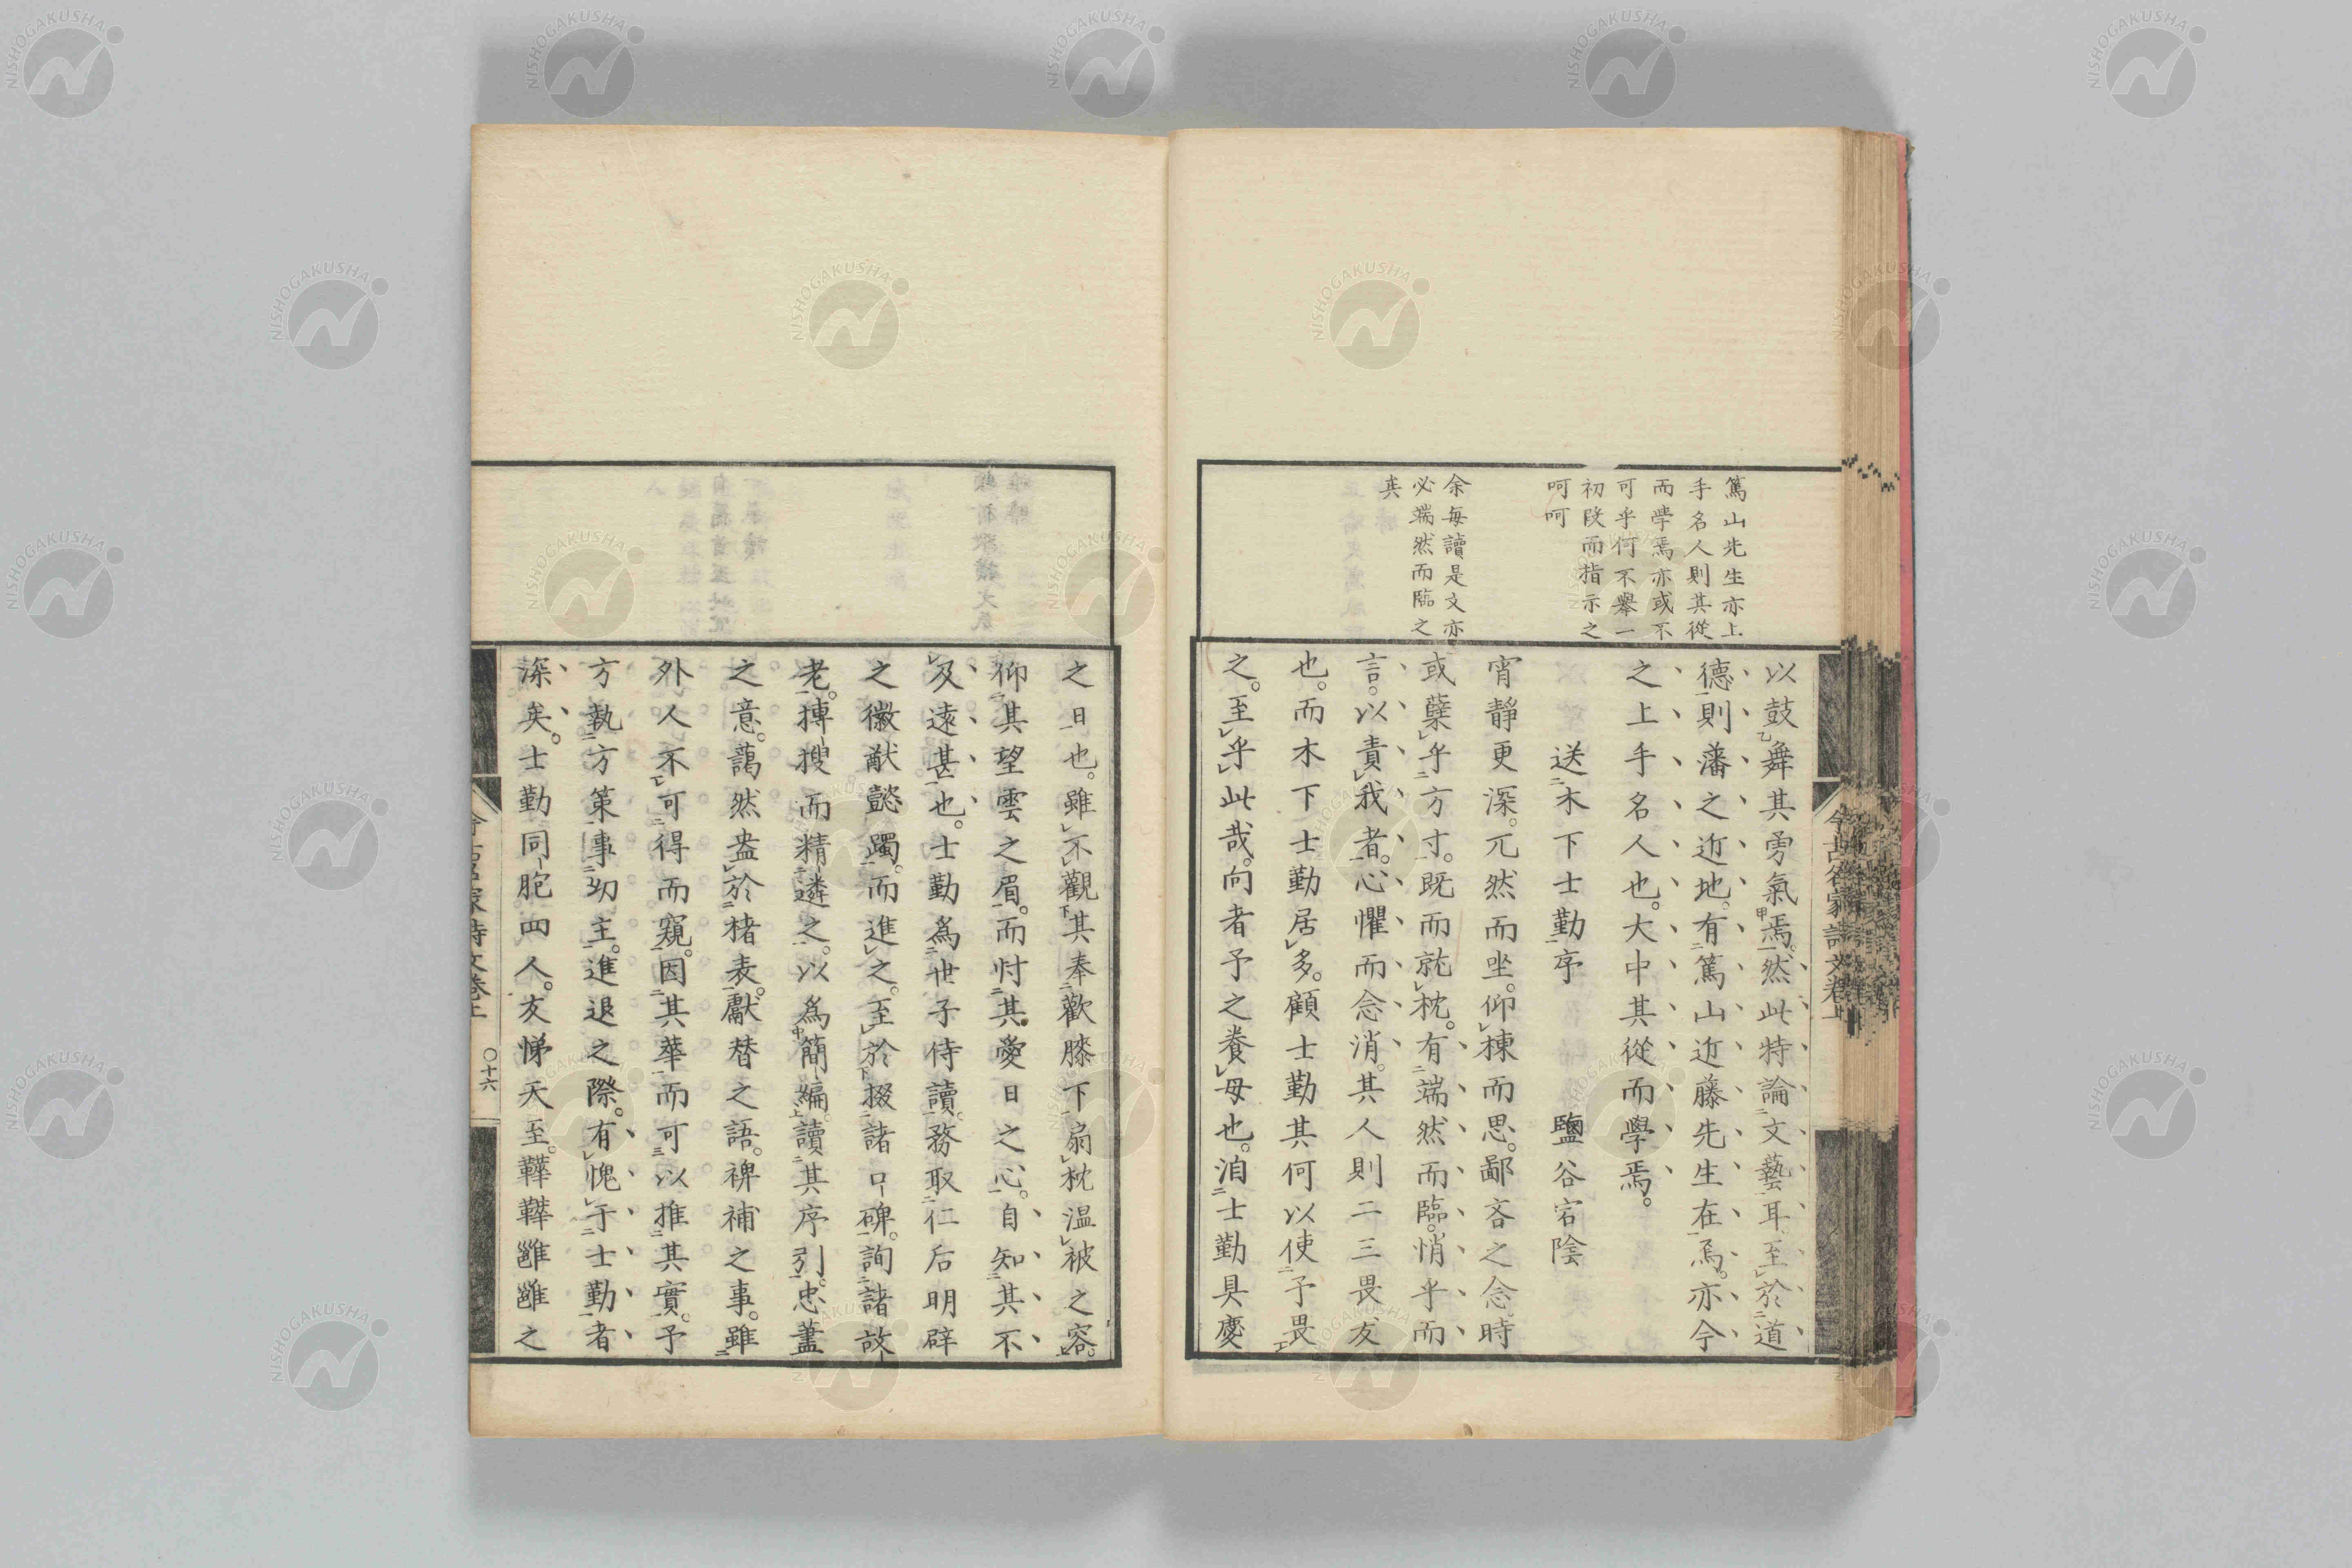 篤山先生亦上
手名人則其從
而學焉亦或不
可乎何不舉一
初段而指示之
呵呵
余每讀是文亦
必端然而臨之
其
以鼓舞其旁氣焉。然此特論文藝耳。至於道
德則藩之近地。有篤山近藤先生在焉。亦今
之上手名人也。大中其從而學焉。
送木下士勤序 鹽谷宕陰
宵靜更深。兀然而坐。仰棟而思。鄙吝之念。時
或蘖乎方寸。既而就枕。有端然而臨。悄乎而
言。以責我者。心懼而念消。其人則二三畏友
也。而木下士勤居多。顧士勤其何以使予畏
之。至乎此哉。向者予之養母也。洎士勤具慶
今古名家詩文卷上
之日也。雖不觀其奉歡膝下扇枕溫被之容。
仰其望雲之眉。而忖其愛日之心。自知其不
及遠甚也。士勤為世子侍讀。務取仁后明辟
之徽猷懿躅。而進之。至於掇諸口碑。詢諸故
老。摶搜而精遴之。以為簡編。讀其序引。忠藎
之意。藹然盎於楮表。獻替之語。裨補之事。雖
外人不可得而窺。因其華而可以推其實。予
方執方策事幼主。進退之際。有愧于士勤者
深矣。士勤同胞四人。友悌天至。韡韡雝雝之
十六